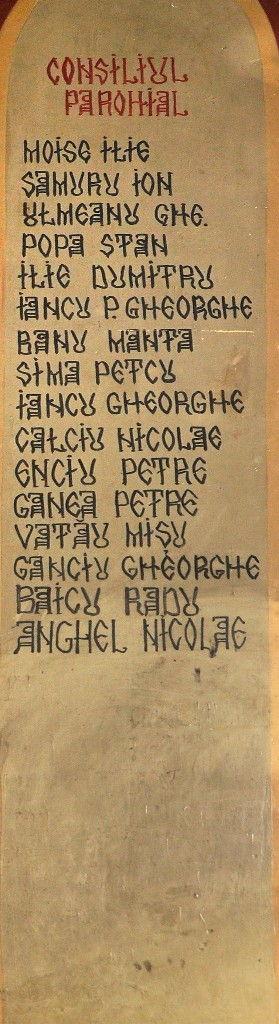 CONSILIUL
PAROHIAL
MOISE ILIE
SAMURU ION
ULMEANU GHE.
POPA STAN
ILIE DUMITRU
IANCU P. GHEORGHE
BANU MANTA
SIMA PETCU
IANCU GHEORGHE
CALCIU NICOLAE
ENCIU PETRE
GANEA PETRE
VATĂU MIȘU
GANCIU GHEORGHE
BAICU RADU
ANGHEL NICOLAE